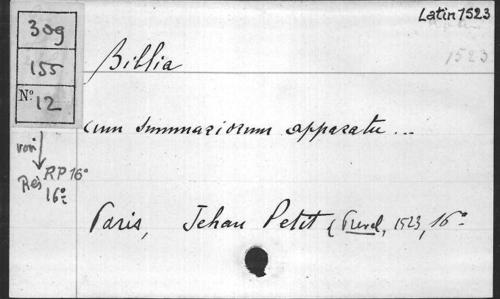 Latin 1523
309
1523
155
Biblia
N° 12
cum summariorum apparatu ...
voir
Rés RP 16°
16°
Paris, Jehan Petit & Prevel, 1523, 16°